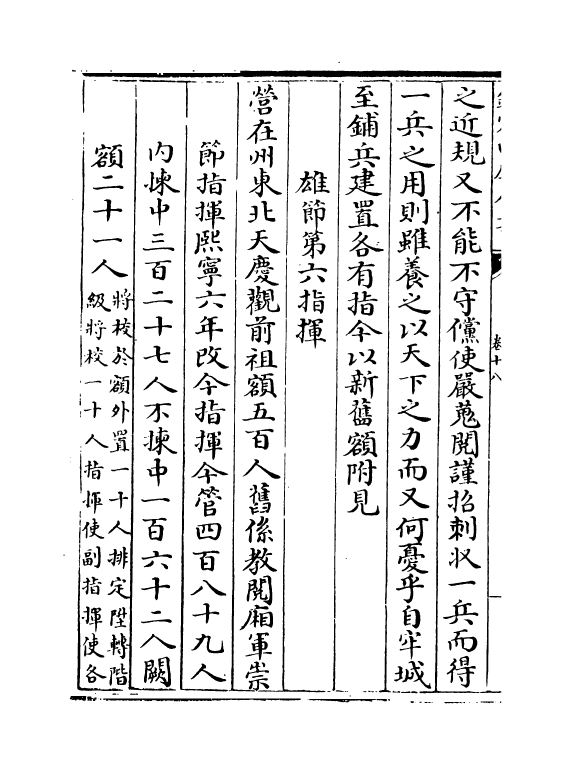 之近規又不能不守儻使嚴蒐閱謹招刺收一兵而得
一兵之用則雖養之以天下之力而又何憂乎自牢城
至鋪兵建置各有指今以新舊額附見
雄節第六指揮
營在州東北天慶觀前祖額五百人舊係教閱廂軍崇
節指揮熙寧六年改今指揮今管四百八十九人
内揀中三百二十七人不揀中一百六十二人闕
額二十一人將校於額外置一十人排定陞轉階
級將校一十人指揮使副指揮使各
卷十八